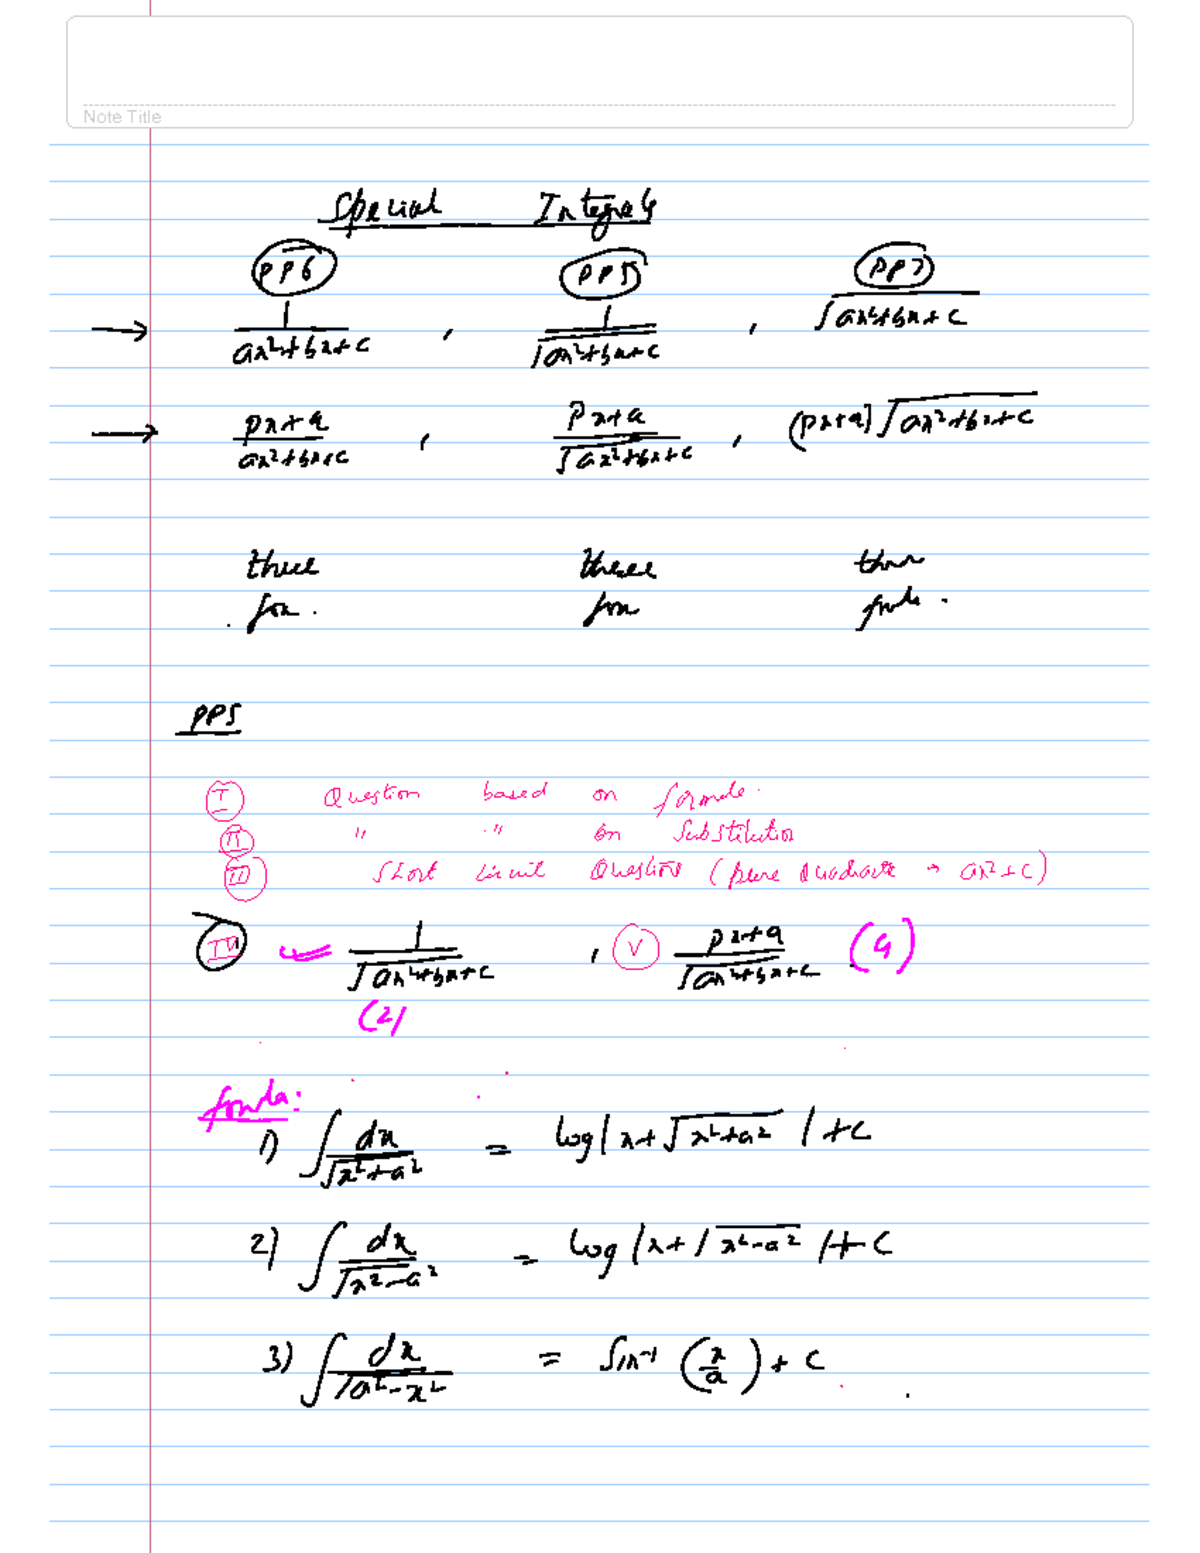 Note Title
Special Integrals
PP6 PP5 PP7
→ 1/(ax²+bx+c) , 1/√(ax²+bx+c) , √(ax²+bx+c)
→ (px+q)/(ax²+bx+c) , (px+q)/√(ax²+bx+c) , (px+q)√(ax²+bx+c)
three three three
for. for
PP5
I Question based on formula.
II " " on Substitution
III Short circuit Questions (pure quadratic → ax²+c)
IV 1/√(ax²+bx+c) , V (px+q)/√(ax²+bx+c) (4)
(2)
1) ∫ dx/√(x²+a²) = log|x+√(x²+a²)|+c
2) ∫ dx/√(x²-a²) = log|x+√(x²-a²)|+c
3) ∫ dx/√(a²-x²) = sin⁻¹(x/a)+c